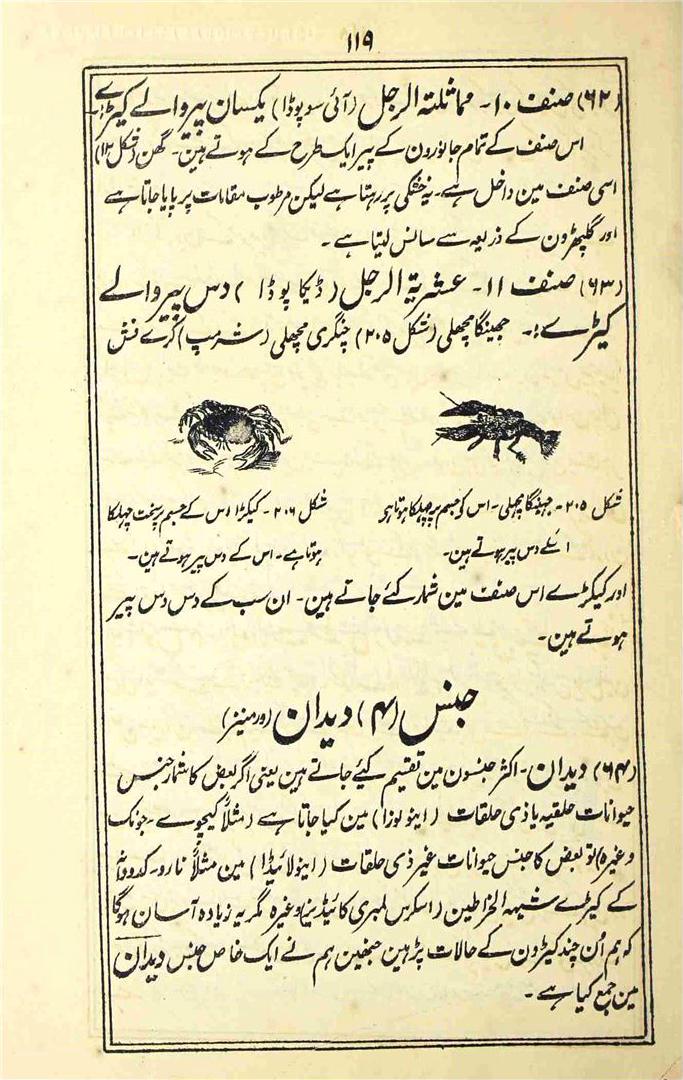 ۱۱۹
(۶۲) صنف ۱۰۔ مماثلتہ الرجل (آئی سوپوڈا) یکسان پیر والے کیڑے:۔
اس صنف کے تمام جانورون کے پیر ایک طرح کے ہوتے ہین۔ گھن (شکل ۱۲)
اسی صنف مین داخل ہے۔ یہ خشکی پر رہتا ہے لیکن مرطوب مقامات پر پایا جاتا ہے
اور گلپھڑون کے ذریعہ سے سانس لیتا ہے۔
(۶۳) صنف ۱۱۔ عشریۃ الرجل (ڈیکا پوڈا) دس پیر والے
کیڑے:۔ جھینگا مچھلی (شکل ۲۰۵) چنگری مچھلی (شرمپ) کرے فش
شکل ۲۰۵۔ جھینگا مچھلی۔ اس کو جسم پر چھلکا ہوتا ہو
اسکے دس پیر ہوتے ہین۔
شکل ۲۰۶۔ کیکڑا اس کے جسم پر سخت چھلکا
ہوتا ہے۔ اس کے دس پیر ہوتے ہین۔
اور کیکڑے اس صنف مین شمار کئے جاتے ہین۔ ان سب کے دس دس پیر
ہوتے ہین۔
جنس (۴) دیدان (ورمنیز)
(۶۴) دیدان۔ اکثر جنسون مین تقیم کیئے جاتے ہین یعنی اگر بعض کا شمار جنس
حیوانات حلقیہ یا ذی حلقات (اینولوزا) مین کیا جاتا ہے (مثلاً کیچوے۔ جونک
وغیرہ) تو بعض کا جنس حیوانات غیر ذی حلقات (اینولائیڈا) مین مثلاً نارو۔ کدو دانہ
کے کیڑے شبیہہ الخراطین (اسکرس لمبری کائیڈیز) وغیرہ مگر یہ زیادہ آسان ہوگا
کہ ہم اُن چند کیڑون کے حالات پڑہین جنھین ہم نے ایک خاص جنس دیدان
مین جمع کیا ہے۔